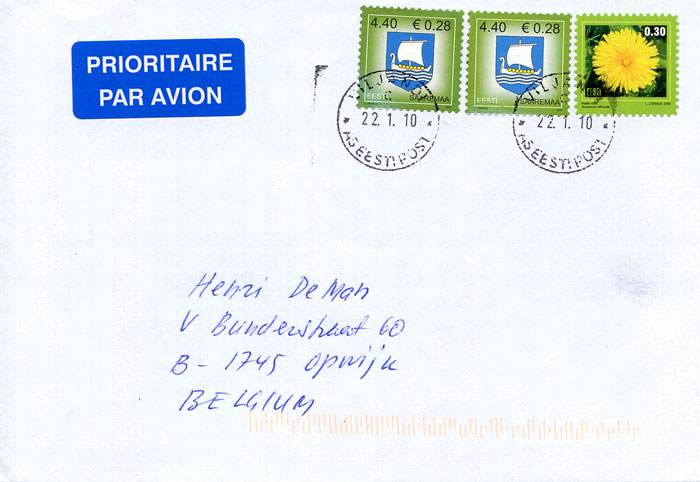 PRIORITAIRE
PAR AVION
4.40 € 0.28
EESTI SAAREMAA
4.40 € 0.28
EESTI SAAREMAA
0.30
EESTI
22.1.10
AS EESTI POST
22.1.10
AS EESTI POST
Henri De Man
V Bunderstraat 60
B-1745 Opwijk
BELGIUM